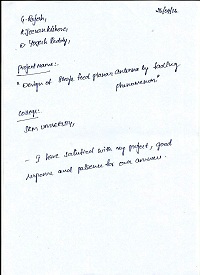 G. Rajesh,
K. Jeevan Kishore,
D Yogesh Reddy,
project name:-
"Design of Single feed planar Antenna by
phenomenon"
College:
SRM University,
- I have satisfied with my project, good
response and patience for our answers.